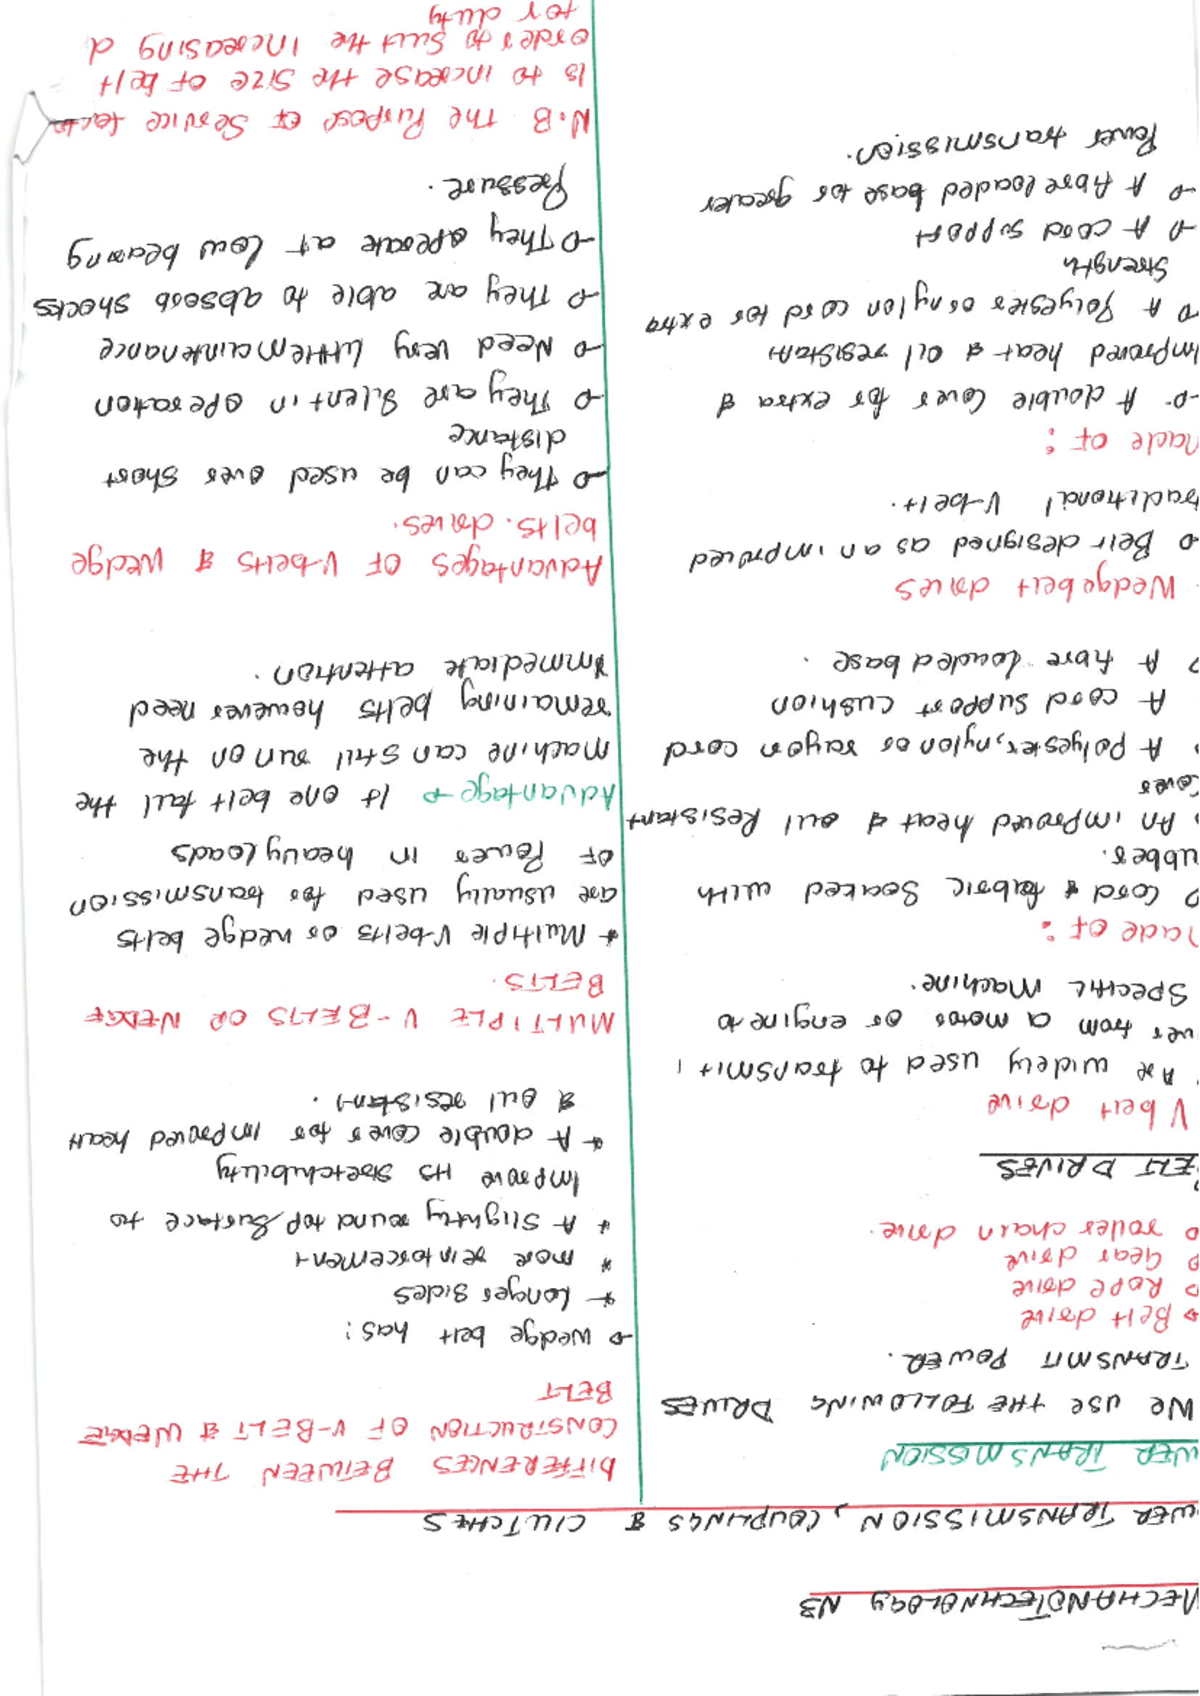 MECHANOTECHNOLOGY N3
WER TRANSMISSION, COUPLINGS & CLUTCHES
WER TRANSMISSION
WE USE THE FOLLOWING DRIVES
TRANSMIT POWER.
→ Belt drive
→ Rope drive
→ Gear drive
→ roller chain drive.
ELT DRIVES
V belt drive
Are widely used to transmit
wer from a motor or engine to
SPECIFIC Machine.
made of:
→ Cord & fabric Soaked with
ubber.
An improved heat & oil Resistant
Cover
A polyester, nylon or rayon cord
A cord support cushion
→ A fibre loaded base.
Wedge belt drives
→ Beir designed as an improved
traditional V-belt.
made of:
→ A double cover for extra &
Improved heat & oil resistant
→ A Polyester or nylon cord for extra
Strength
→ A cord support
→ A fibre loaded base for greater
Power transmission.
DIFFERENCES BETWEEN THE
CONSTRUCTION OF V-BELT & WEDGE
BELT
→ Wedge belt has:
* Longer sides
* more reinforcement
* A Slightly round top Surface to
Improve its stretchibility
* A double cover for improved heat
& oil resistant.
MULTIPLE V-BELTS OR WEDGE
BELTS.
* Multiple V-belts or wedge belts
are usually used for transmission
OF Power in heavy Loads
Advantage → If one belt fail the
machine can still run on the
remaining belts however need
immediate attention.
Advantages OF V-belts & Wedge
belts. drives.
→ They can be used over short
distance
→ They are Silent in operation
→ Need very little maintenance
→ They are able to absorb shocks
→ They operate at low bearing
Pressure.
N.B The Purpose of Service factor
Is to increase the size of belt
order to Suit the Increasing d
for duty